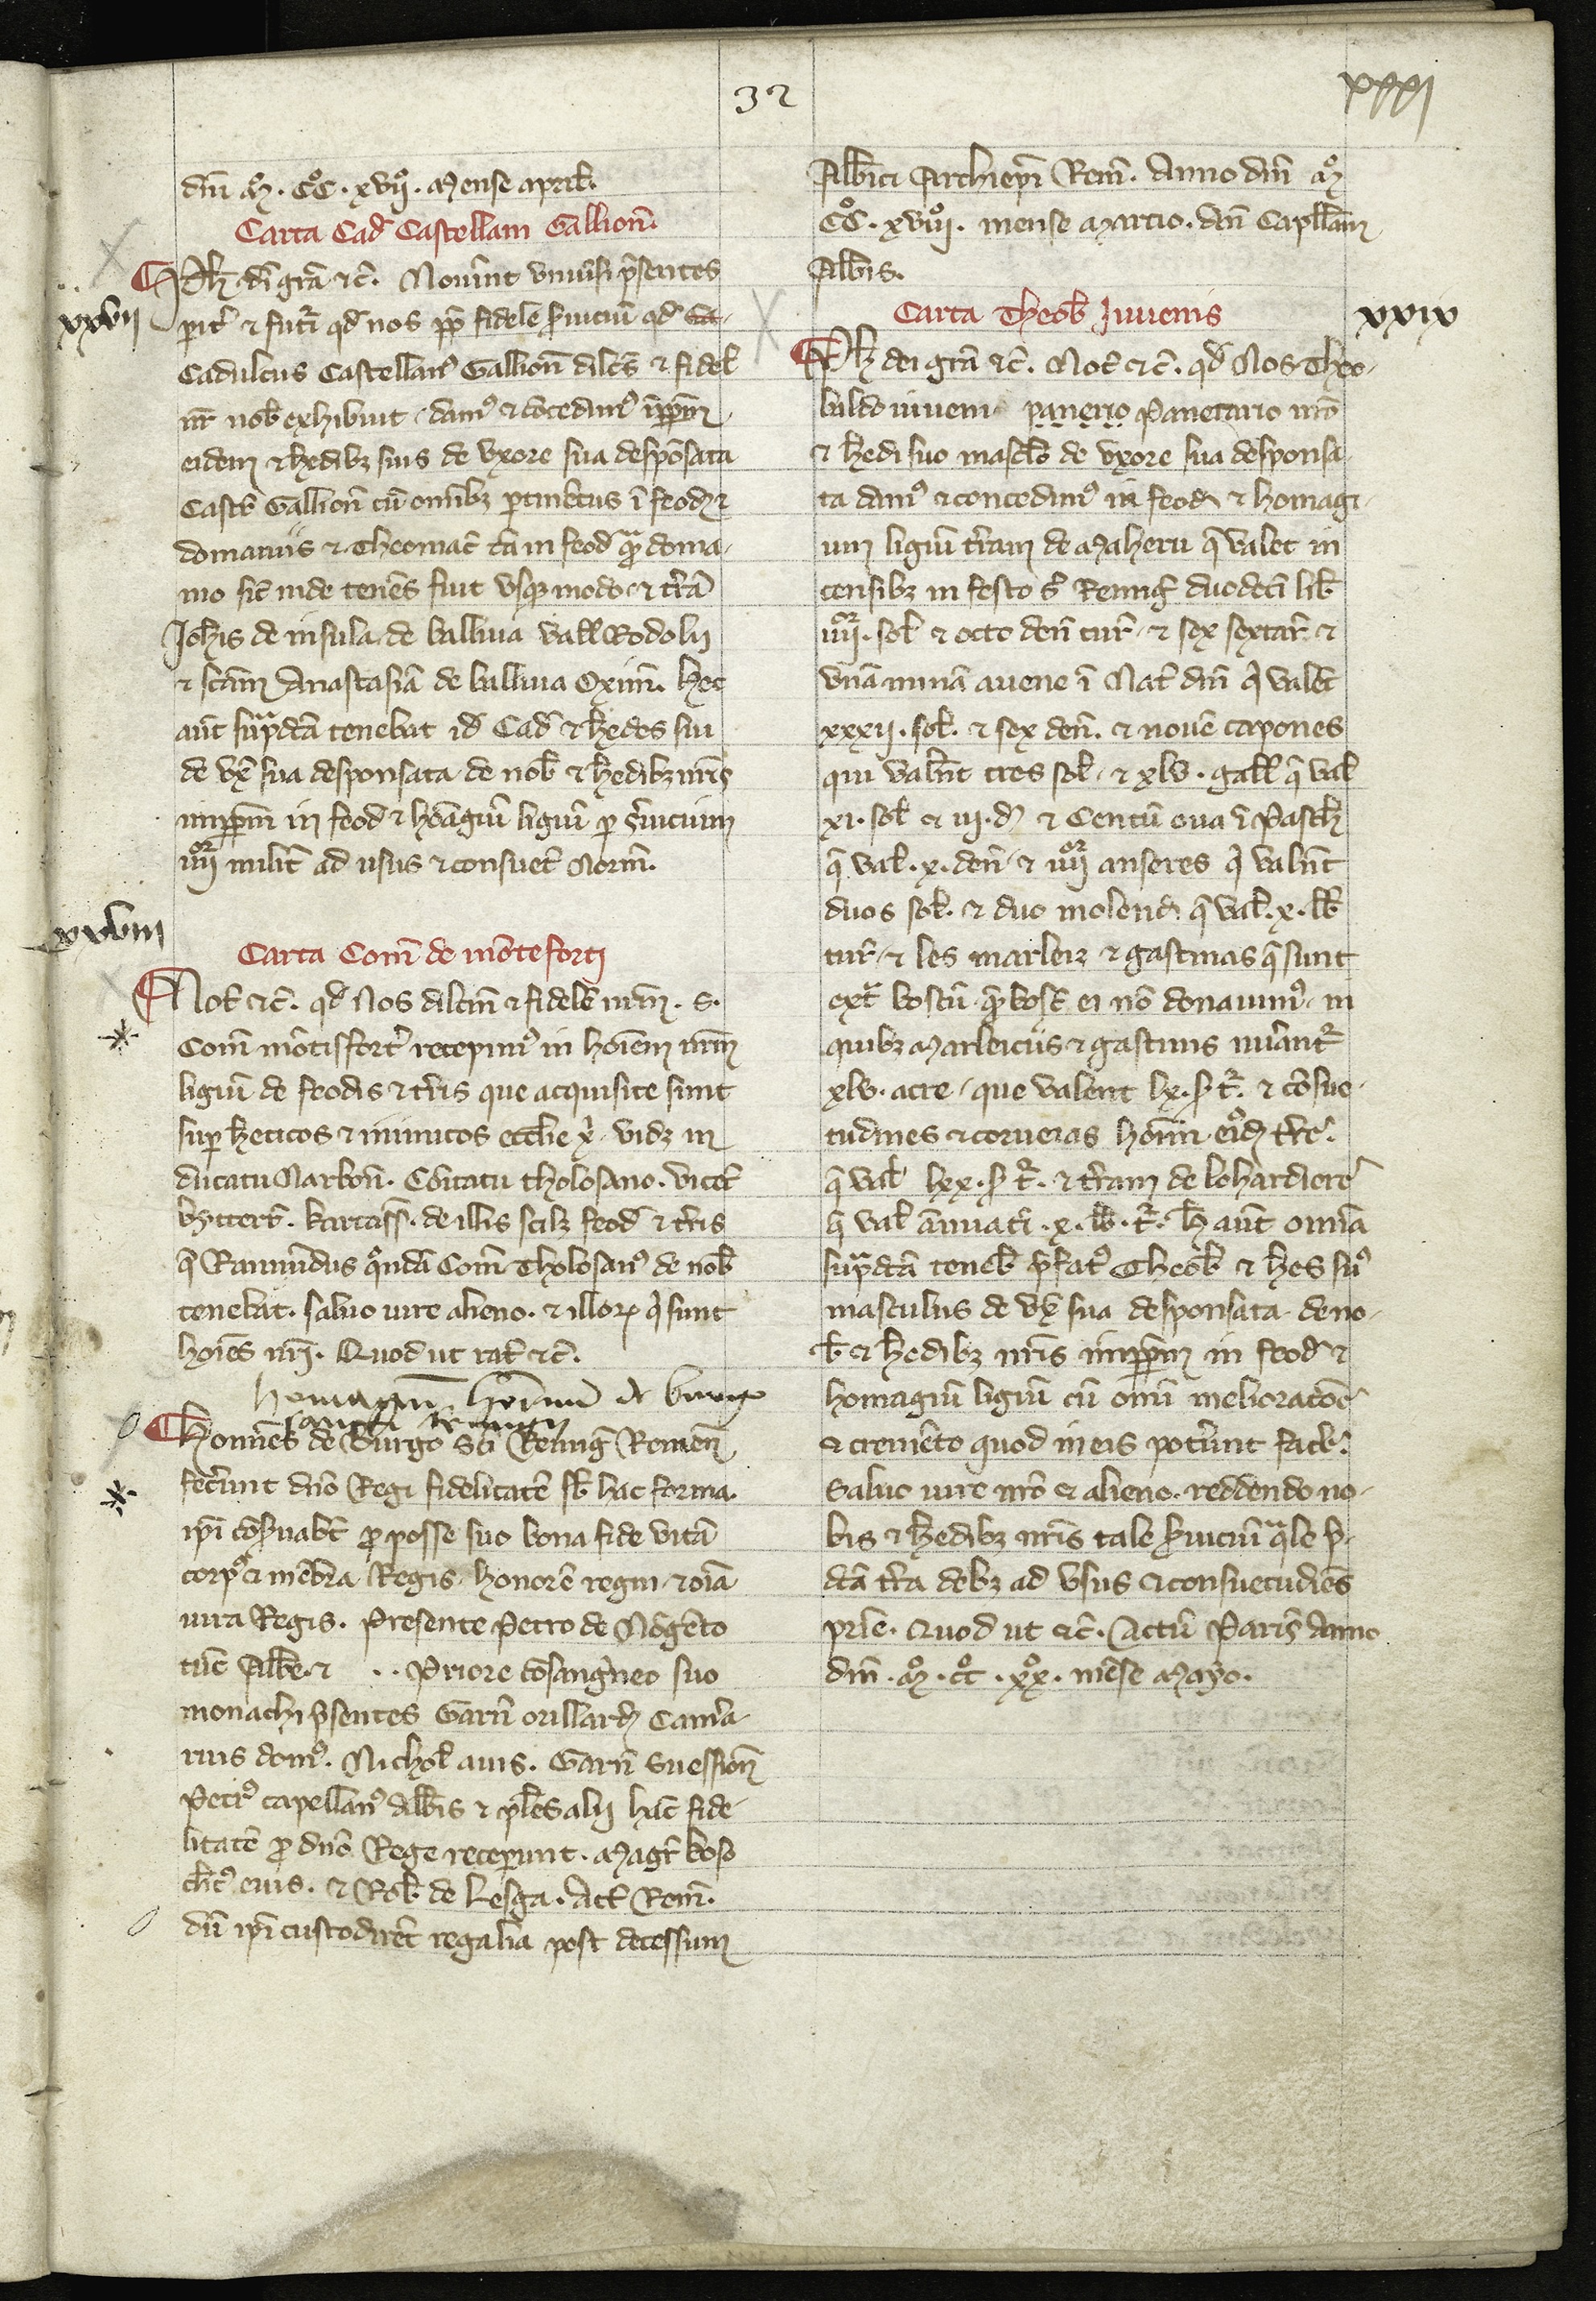 32
xxxi
dni M. CC. xvii. Mense april.
Carta Cad Castellani Gallion.
Ph. di gra etc. Noverint universi presentes
xxvii
parit et futuri qd nos pp fidele serviciu qd
Cadulcus Castellan Gallion dilcs et fidel
nr nob exhibuit. dam et concedim imppm
eidem et hedibz suis de uxore sua desponsata
Castr Gallion cu omibz ptinetiis i feod et
domaniis et Theomac ta in feod qa doma-
nio sic inde tenes fuit usq modo et tra
Johis de insula de ballivia vall Rodolii
et scam Anastasia de ballivia Oxim. hec
aut supdta tenebit id Cad et hedes sui
de ux sua desponsata de nob et hedibz nris
imppm in feod et homagiu ligiu p serviciu
iiii milit ad usus et consuet Norm.
xxviii
Carta Com de monteforti
Not etc. qd Nos dilcm et fidele nrm. S.
Com motisfort recepim in hoiem nrm
ligiu de feodis et tris que acquisite sunt
sup heticos et inimicos ecclie x. vidz in
ducatu Narbon. Comitatu tholosano. vicec
bytterr. karcass. de illis scilz feod et tris
q Raimundus qonda Com Tholosan de nob
tenebat. salvo iure alieno. et illor q sunt
hoies nri. Quod ut rat etc.
homagium hominu de burgo
sancti Remigii
Homines de Burgo sci Remig Remen
fecerunt dno Regi fidelitate sb hac forma.
ipi coservabt pro posse suo bona fide vita
corp et mebra Regis. honore regni et oia
iura Regis. Presente Petro de Nogeto
tuc Abbe et .. Priore cosangineo suo
monachi psentes Garn orillard Camera-
rius dom. Nichol avis. Garn Suession
Petr capellan abbis et ples alii hac fide-
litate pro dno Rege receperunt. Magr boso
clic eius. et Rob de Lesga. Act Rem.
du ipi custodiret regalia post decessum
Albrici Archiepi Rem. Anno dni M
CC. xviii. mense Martio. dni Capllani
Abbis.
Carta Theob Juvenis
xxix
Ph dei gra etc. Not etc. qd Nos Theo-
baldo iuveni panerio Panetario nro
et hedi suo masclo de uxore sua desponsa
ta dam et concedim in feod et homagi-
um ligiu tram de Maheru q valet in
censibz in festo s Remig duodeci lib
iiii. sol et octo den tur et sex sextar et
una mina avene i Nat dni q valet
xxxii. sol. et sex den. et nove capones
qui valnt tres sol. et xlv. gall q val
xi. sol et iii. d et Centu ova i Pasch
q val. x. den et iiii anseres q valnt
duos sol. et duo molend q val. x. lb
tur et les marleiz et gastinas q sunt
ext boscu qr bosc ei no donavim. in
quibz Marleiciis et gastinis nuant
xlv. acre. que valent lx. s t. et cosue-
tudines et corveias homin eiod tre.
q val lxx. s t. et tram de lohardiere
q val annuati. x. lb. t. hec aut omia
supdta teneb pfat Theob et hes su
masculus de ux sua desponsata. de no-
b et hedibz nris imppm in feod et
homagiu ligiu cu omi melioratoe
et cremeto quod in eis poterint face.
Salvo iure nro et alieno. reddendo no-
bis et hedibz nris tale serviciu qale p-
dta tra debz ad usus et consuetudies
prie. Quod ut etc. Actu Paris Anno
dni. M. CC. xx. mese Mayo.